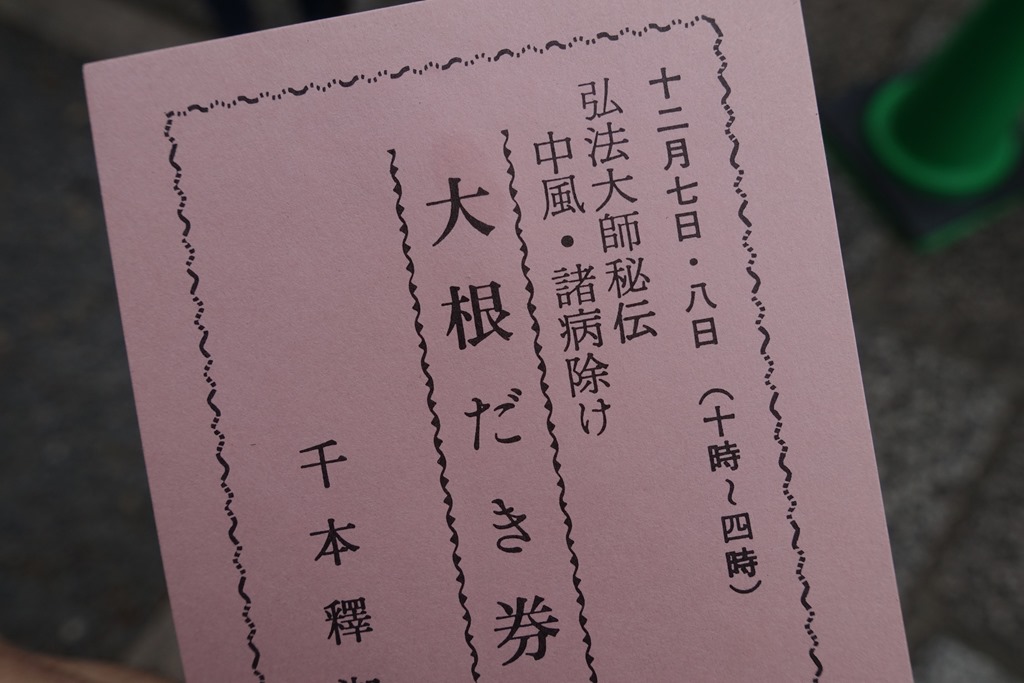 十二月七日・八日 (十時～四時)
弘法大師秘伝
中風・諸病除け
大根だき券
千本釋